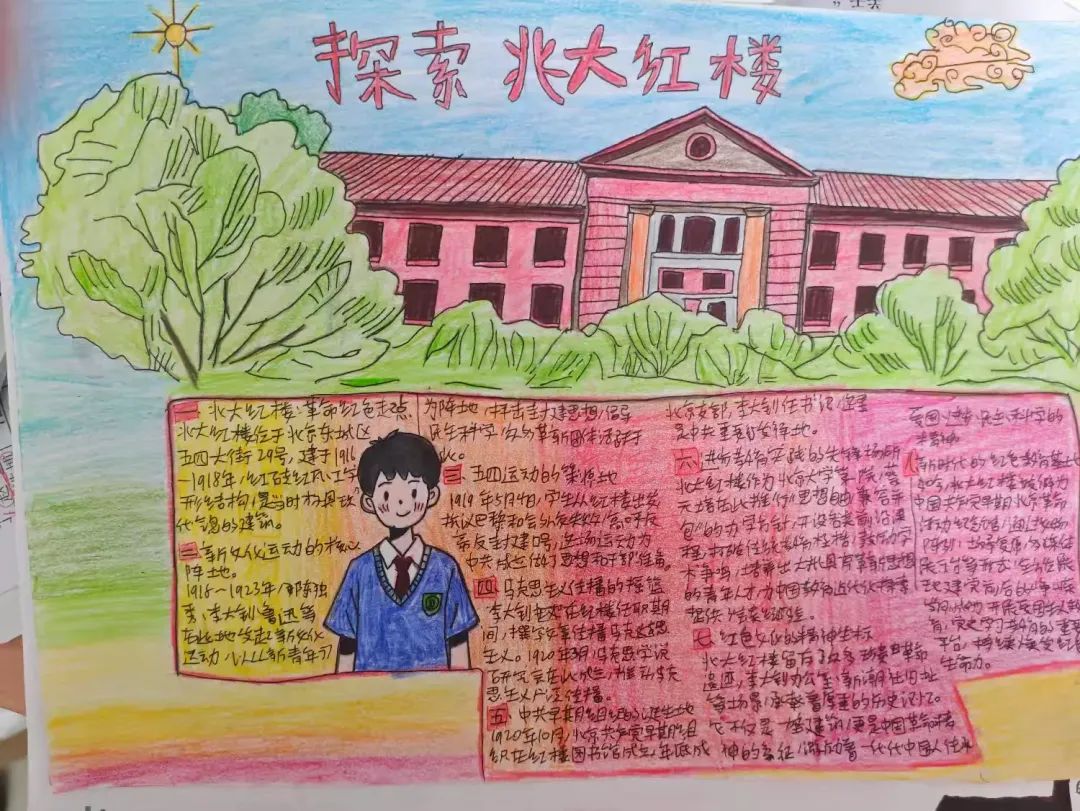 探索 北大红楼
一、北大红楼:革命红色起点
北大红楼位于北京东城区
五四大街29号,建于1916
—1918年,红砖红瓦,工字
形结构,是当时极具现
代气息的建筑。
二、新文化运动的核心
阵地。
1915~1923年,陈独
秀、李大钊、鲁迅等
在此地发起新文化
运动,以《新青年》
为阵地,抨击封建思想,倡导
民主科学
三、五四运动的策源地
1919年5月4日,学生从红楼出发
抗议巴黎和会外交失败,高呼反
帝反封建口号,这场运动为
中共成立做了思想和干部准备。
四、马克思主义传播的摇篮
李大钊在红楼任职期
间,撰文宣传马克思
主义。1920年3月,马克思学说
研究会在此成立,推动马克
思主义广泛传播。
五、中共早期组织的诞生地
1920年10月,北京共产党早期组
织在红楼图书馆成立,年底成
北京支部,李大钊任书记,这里
是中共重要的发祥地。
六、进步教育实践的先锋场所
北大红楼作为北京大学第一院,蔡
元培在此推行“思想自由,兼容并
包”的办学方针,开设各类前沿课
程,打破传统教育桎梏,鼓励学
术争鸣,培养出大批具有革新思想
的青年人才,为中国教育近代化探索
提供了宝贵经验。
七、红色文化的精神坐标
北大红楼留存了众多珍贵革命
遗迹,李大钊办公室、新潮社旧址
等场景,承载着厚重的历史记忆。
它不仅是一栋建筑,更是中国革命精
神的象征,激励着一代代中国人传承
爱国、进步、民主、科学的
八、新时代的红色教育基地
如今,北大红楼
中国共产党早期北京革命
活动纪念馆,通过
陈列、场景复原、
展示
平台,持续
生命力。